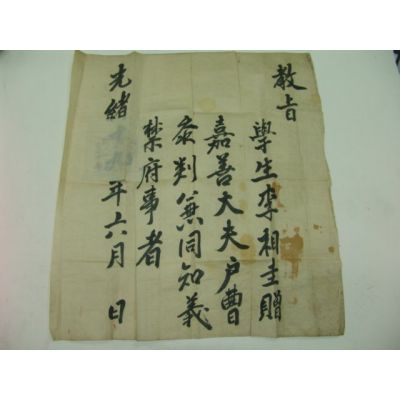 教旨
學生李相圭贈
嘉善大夫戶曹
叅判兼同知義
禁府事者
光緒 年六月 日